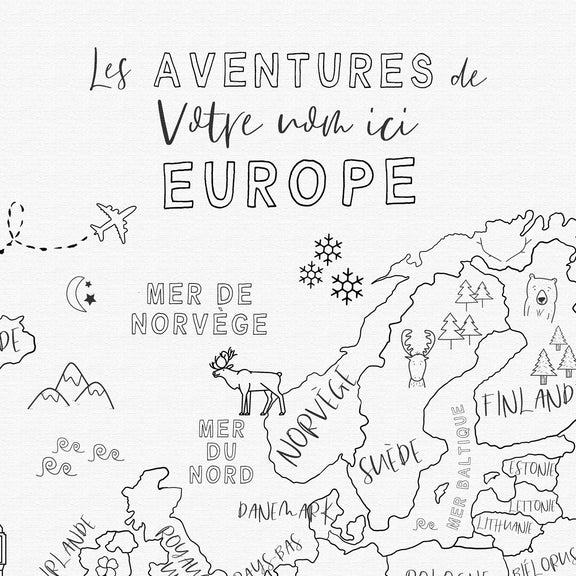 Les AVENTURES de
Votre nom ici
EUROPE
MER DE
NORVÈGE
DE
NORVÈGE
FINLAND
MER
DU
NORD
SUÈDE
MER BALTIQUE
ESTONIE
DANEMARK
LETTONIE
LITHUANIE
IRLANDE
ROYAU
PAYS-BAS
POLOGNE
BIÉLORUS